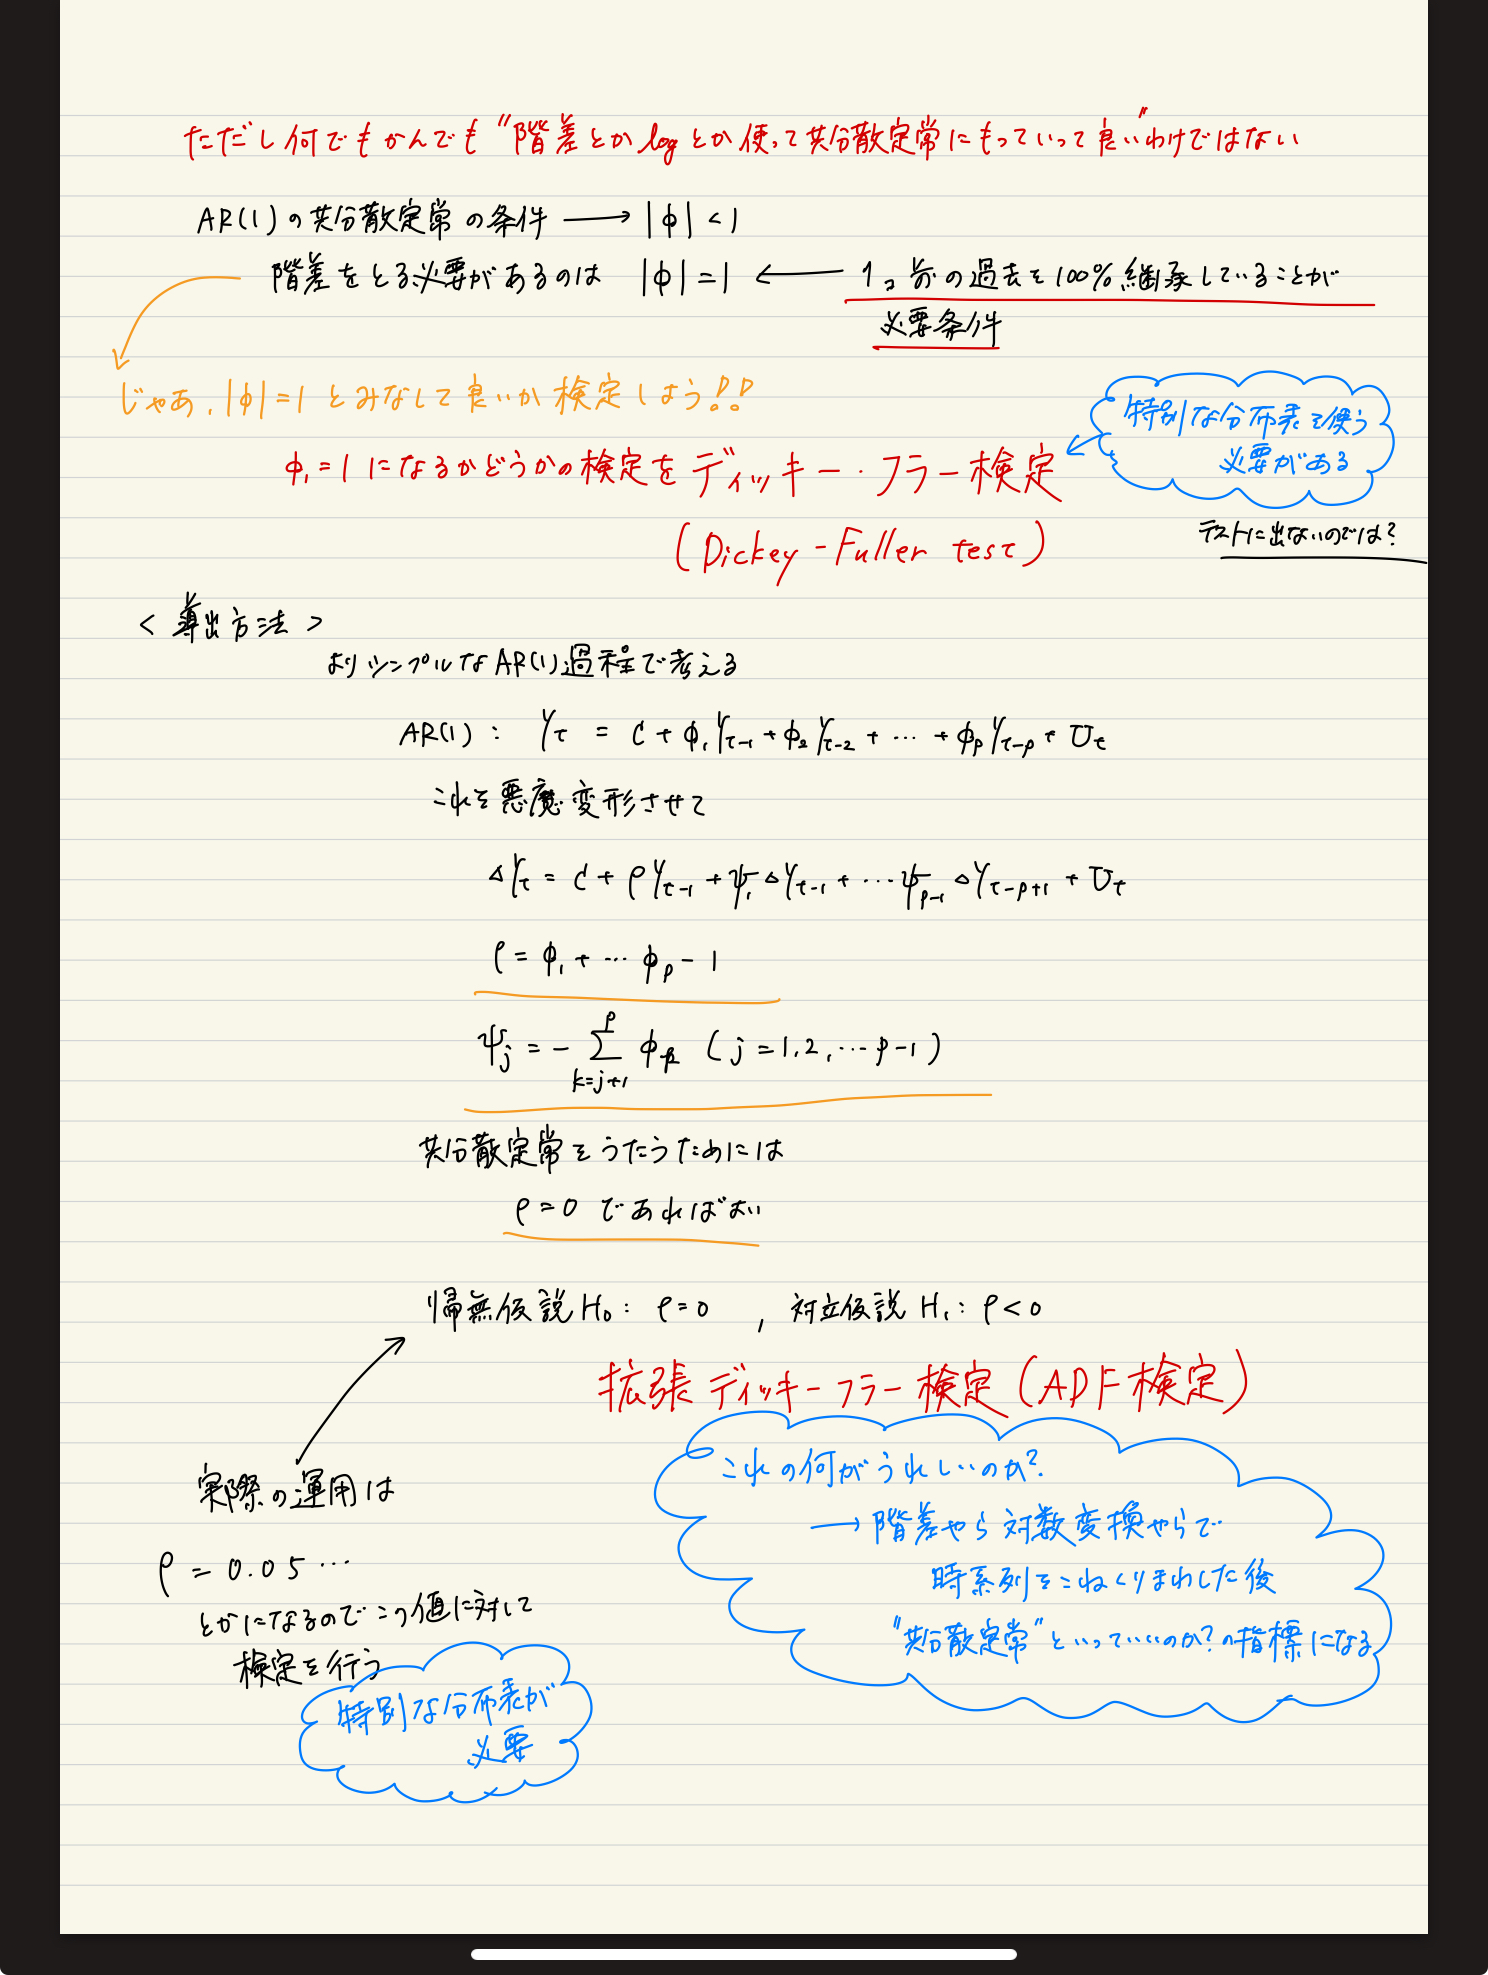 ただし何でもかんでも"階差とかlogとか使って共分散定常にもっていって良い"わけではない
AR(1)の共分散定常の条件 → |φ| < 1
階差をとる必要があるのは |φ| = 1 ← 1コ前の過去を100%継承していることが
必要条件
じゃあ、|φ| = 1 とみなして良いか検定しよう!!
φ₁ = 1 になるかどうかの検定をディッキー・フラー検定
(Dickey-Fuller test)
特別な分布表を使う
必要がある
テストに出ないのでは?
< 導出方法 >
よりシンプルなAR(1)過程で考える
AR(1) : Yt = C + φ₁Yt-1 + φ₂Yt-2 + … + φpYt-p + Ut
これを悪魔変形させて
△Yt = C + ρYt-1 + ψ₁△Yt-1 + … ψp-1 △Yt-p+1 + Ut
ρ = φ₁ + … φp - 1
ψj = - Σ[k=j+1, p] φk ( j = 1, 2, … p-1 )
共分散定常をうたうためには
ρ = 0 であればよい
帰無仮説 H₀ : ρ = 0 , 対立仮説 H₁ : ρ < 0
拡張ディッキーフラー検定 (ADF検定)
これの何がうれしいのか?
→ 階差やら対数変換やらで
時系列をこねくりまわした後
"共分散定常"といっていいのか?の指標になる
実際の運用は
ρ = 0.05 …
とかになるのでこの値に対して
検定を行う
特別な分布表が
必要